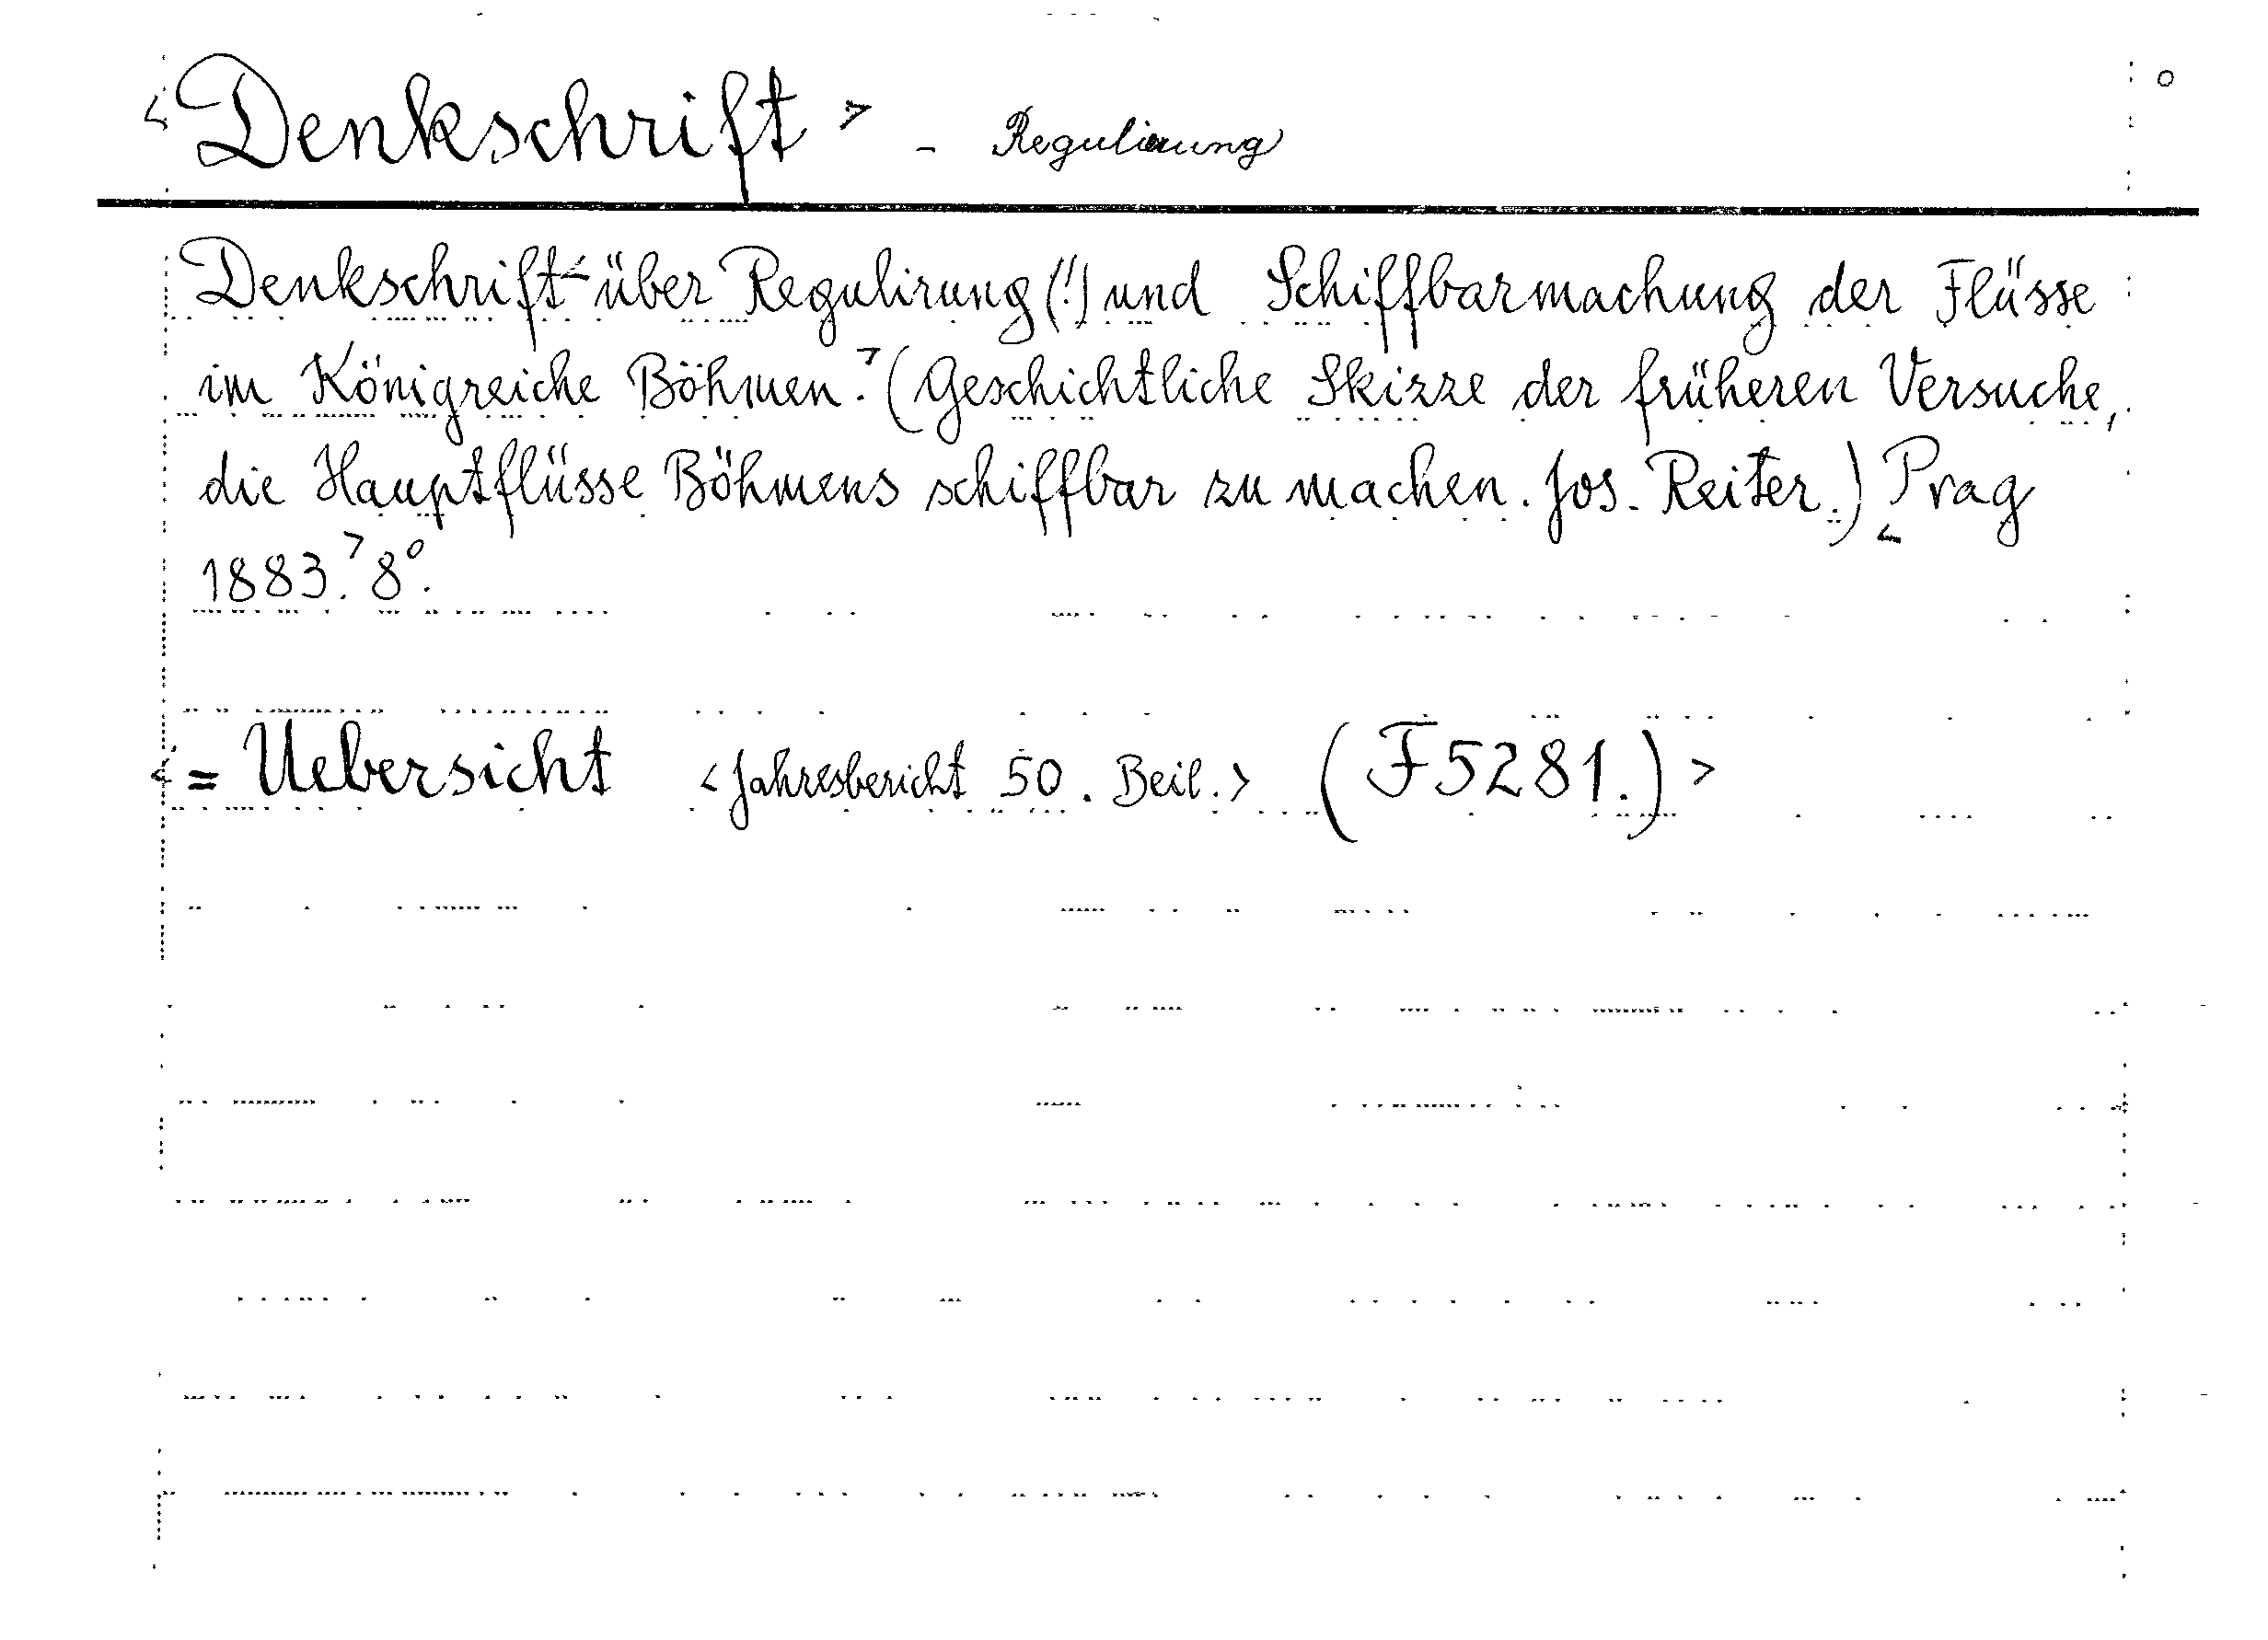 <Denkschrift> - Regulierung
Denkschrift < über Regulirung (!) und Schiffbarmachung der Flüsse
im Königreiche Böhmen.> (Geschichtliche Skizze der früheren Versuche,
die Hauptflüsse Böhmens schiffbar zu machen. Jos. Reiter.) <Prag
1883.> 8°.
<= Uebersicht <Jahresbericht 50. Beil.> (F5281.)>